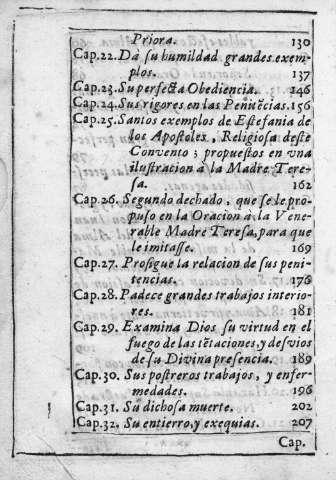 Priora. 130
Cap.22. Dá su humildad grandes exem-
plos. 137
Cap.23. Su perfecta Obediencia. 146
Cap.24. Sus rigores en las Penitẽcias. 156
Cap.25. Santos exemplos de Estefania de
los Apostoles, Religiosa deste
Convento; propuestos en vna
ilustracion à la Madre Tere-
sa. 162
Cap.26. Segundo dechado, que se le pro-
puso en la Oracion à la Vene-
rable Madre Teresa, para que
le imitasse. 169
Cap.27. Prosigue la relacion de sus peni-
tencias. 176
Cap.28. Padece grandes trabajos interio-
res. 181
Cap.29. Examina Dios su virtud en el
fuego de las tẽtaciones, y desvios
de su Divina presencia. 189
Cap.30. Sus postreros trabajos, y enfer-
medades. 196
Cap.31. Su dichosa muerte. 202
Cap.32. Su entierro, y exequias. 207
Cap.